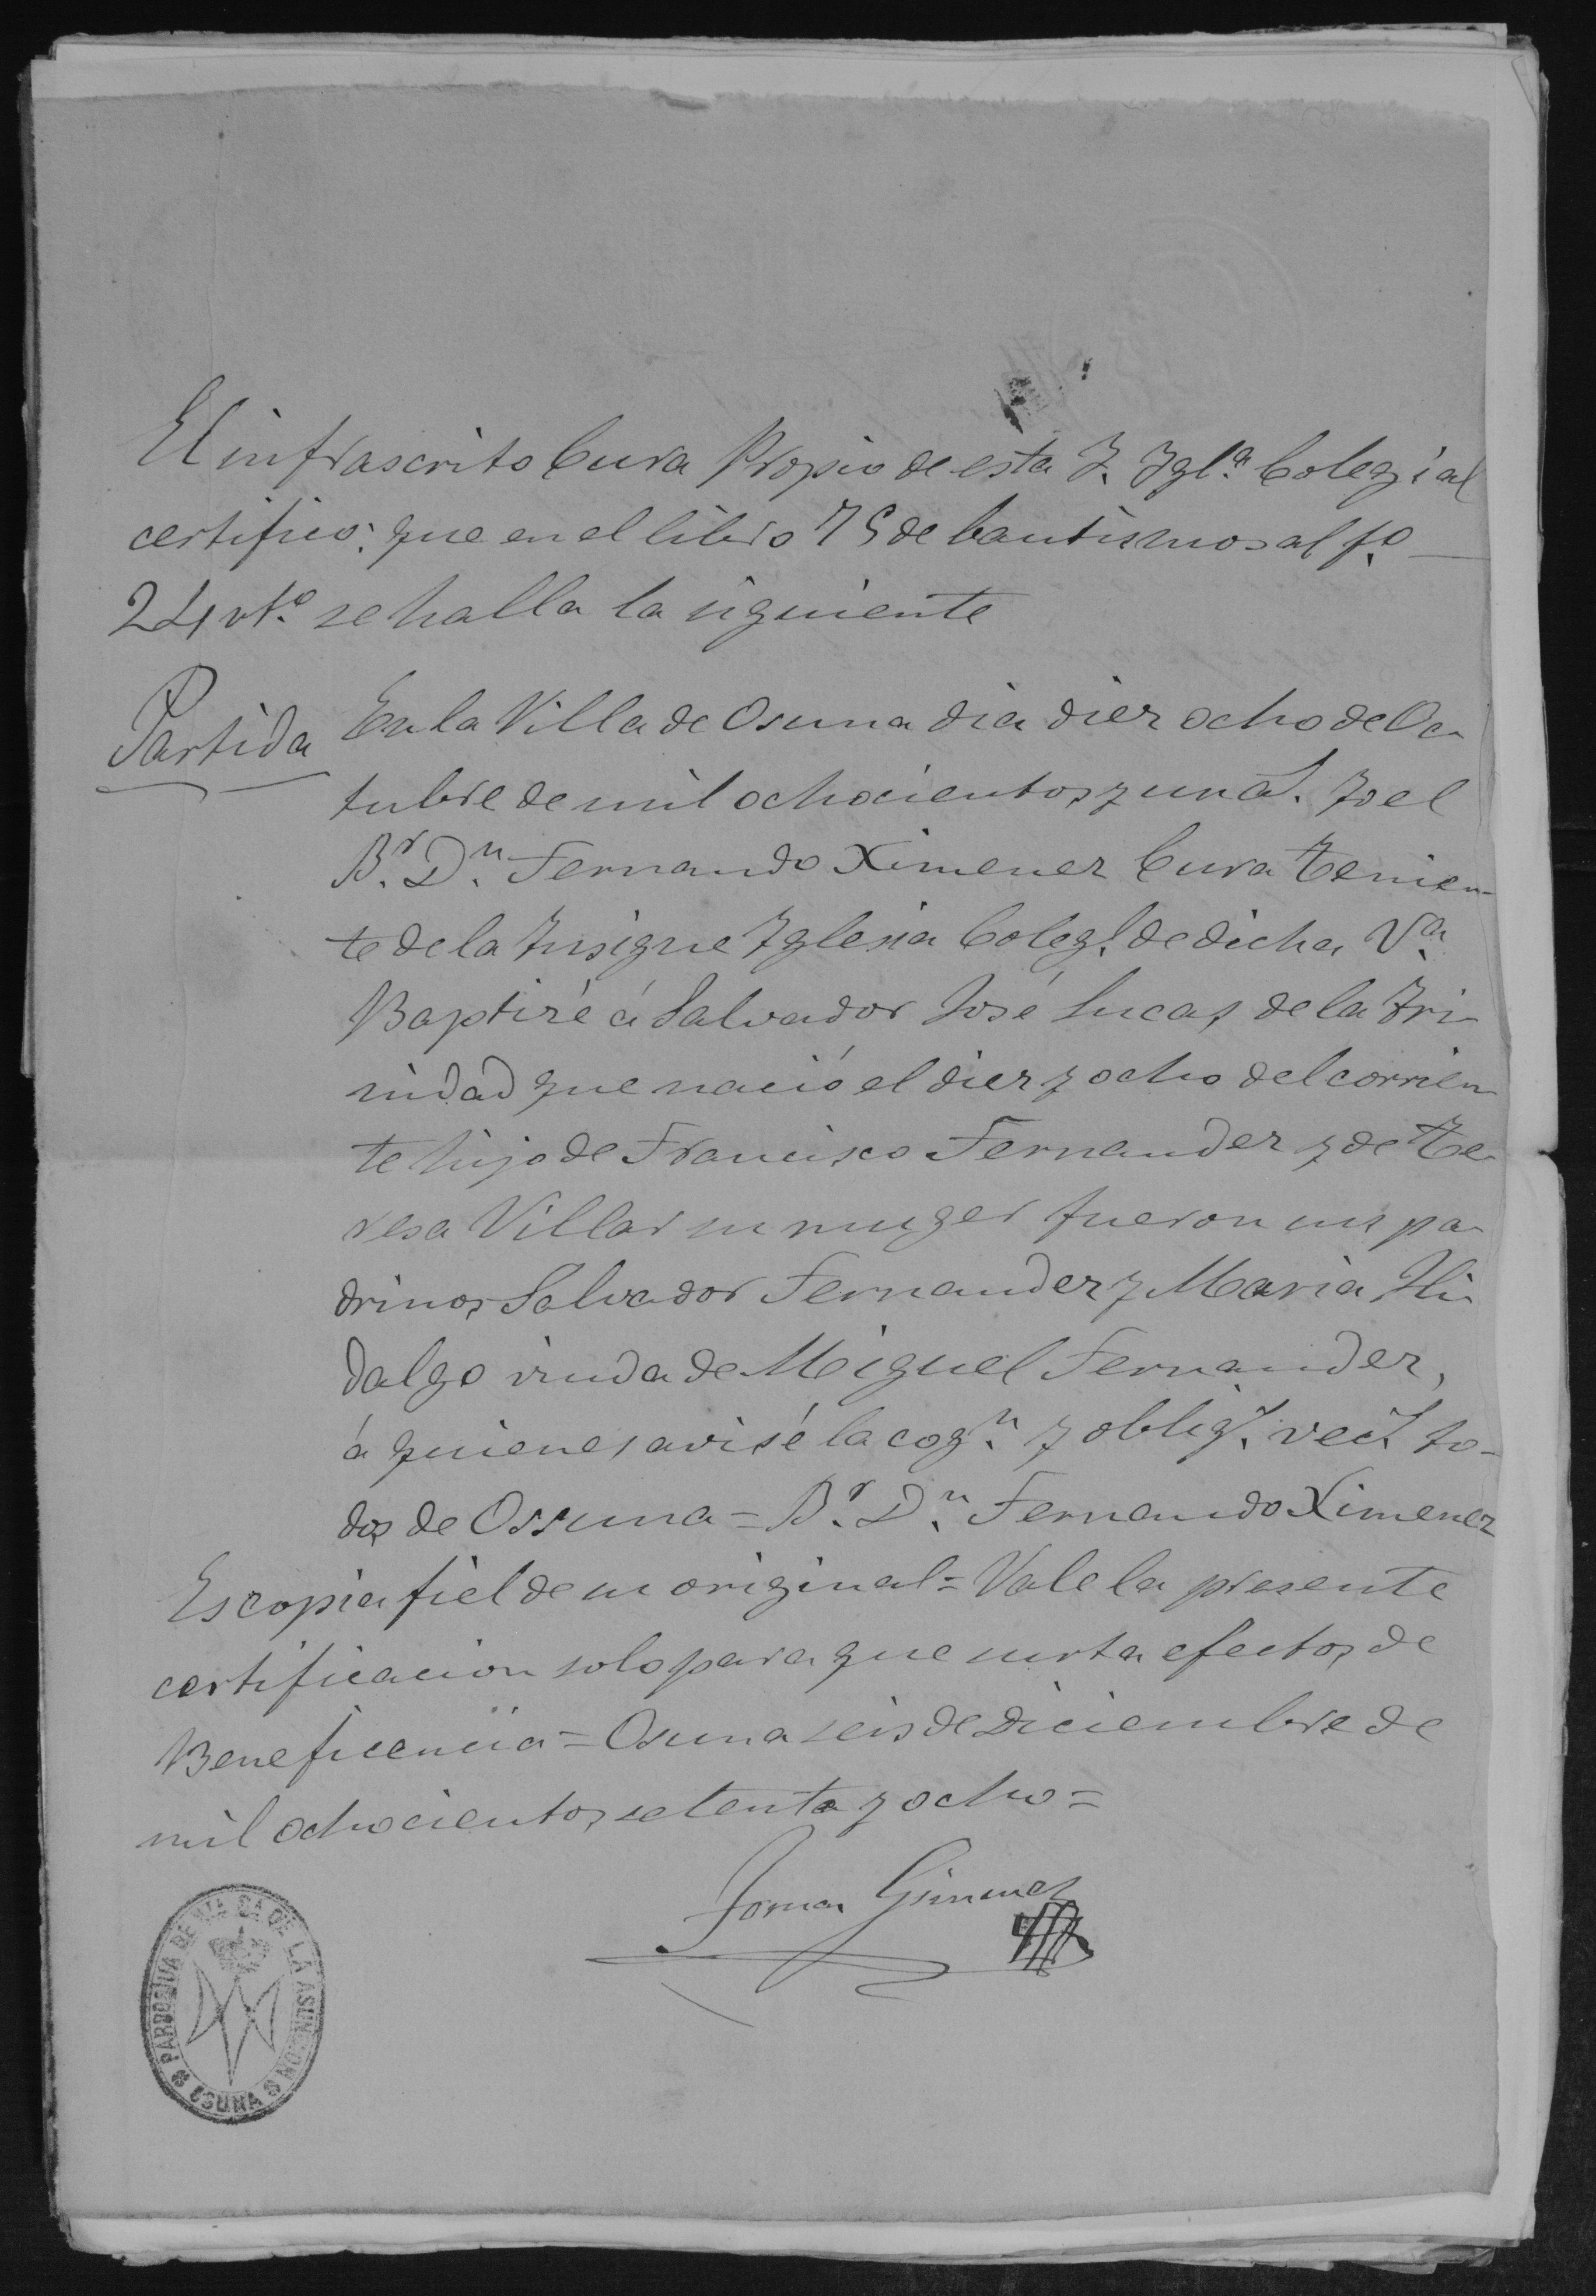 El infrascrito Cura Propio de esta Y. Ygl.ª Colegial
certifico: que en el libro 75 de bautismos al f.º
24 vt.º se halla la siguiente
Partida En la Villa de Osuna dia diez ocho de Oc-
tubre de mil ochocientos y uno. Yo el
B.r D.n Fernando Ximenez Cura tenien-
te de la Insigne Yglesia Coleg.l de dicha V.a
Baptizé á Salvador José Lucas de la Tri-
nidad que nació el diez y ocho del corrien-
te hijo de Francisco Fernandez y de Te-
resa Villar su muger fueron sus pa-
drinos Salvador Fernandez y Maria Hi-
dalgo viuda de Miguel Fernandez,
á quienes avisé la cog.n y oblig.s vec.s to-
dos de Ossuna = B.r D.n Fernando Ximenez
Es copia fiel de su original = Vale la presente
certificacion solo para que surta efectos de
Beneficencia = Osuna seis de Diciembre de
mil ochocientos setenta y ocho =
Gimenez
PARROQUIA DE NTA. SA. DE LA ASUNCION
OSUNA